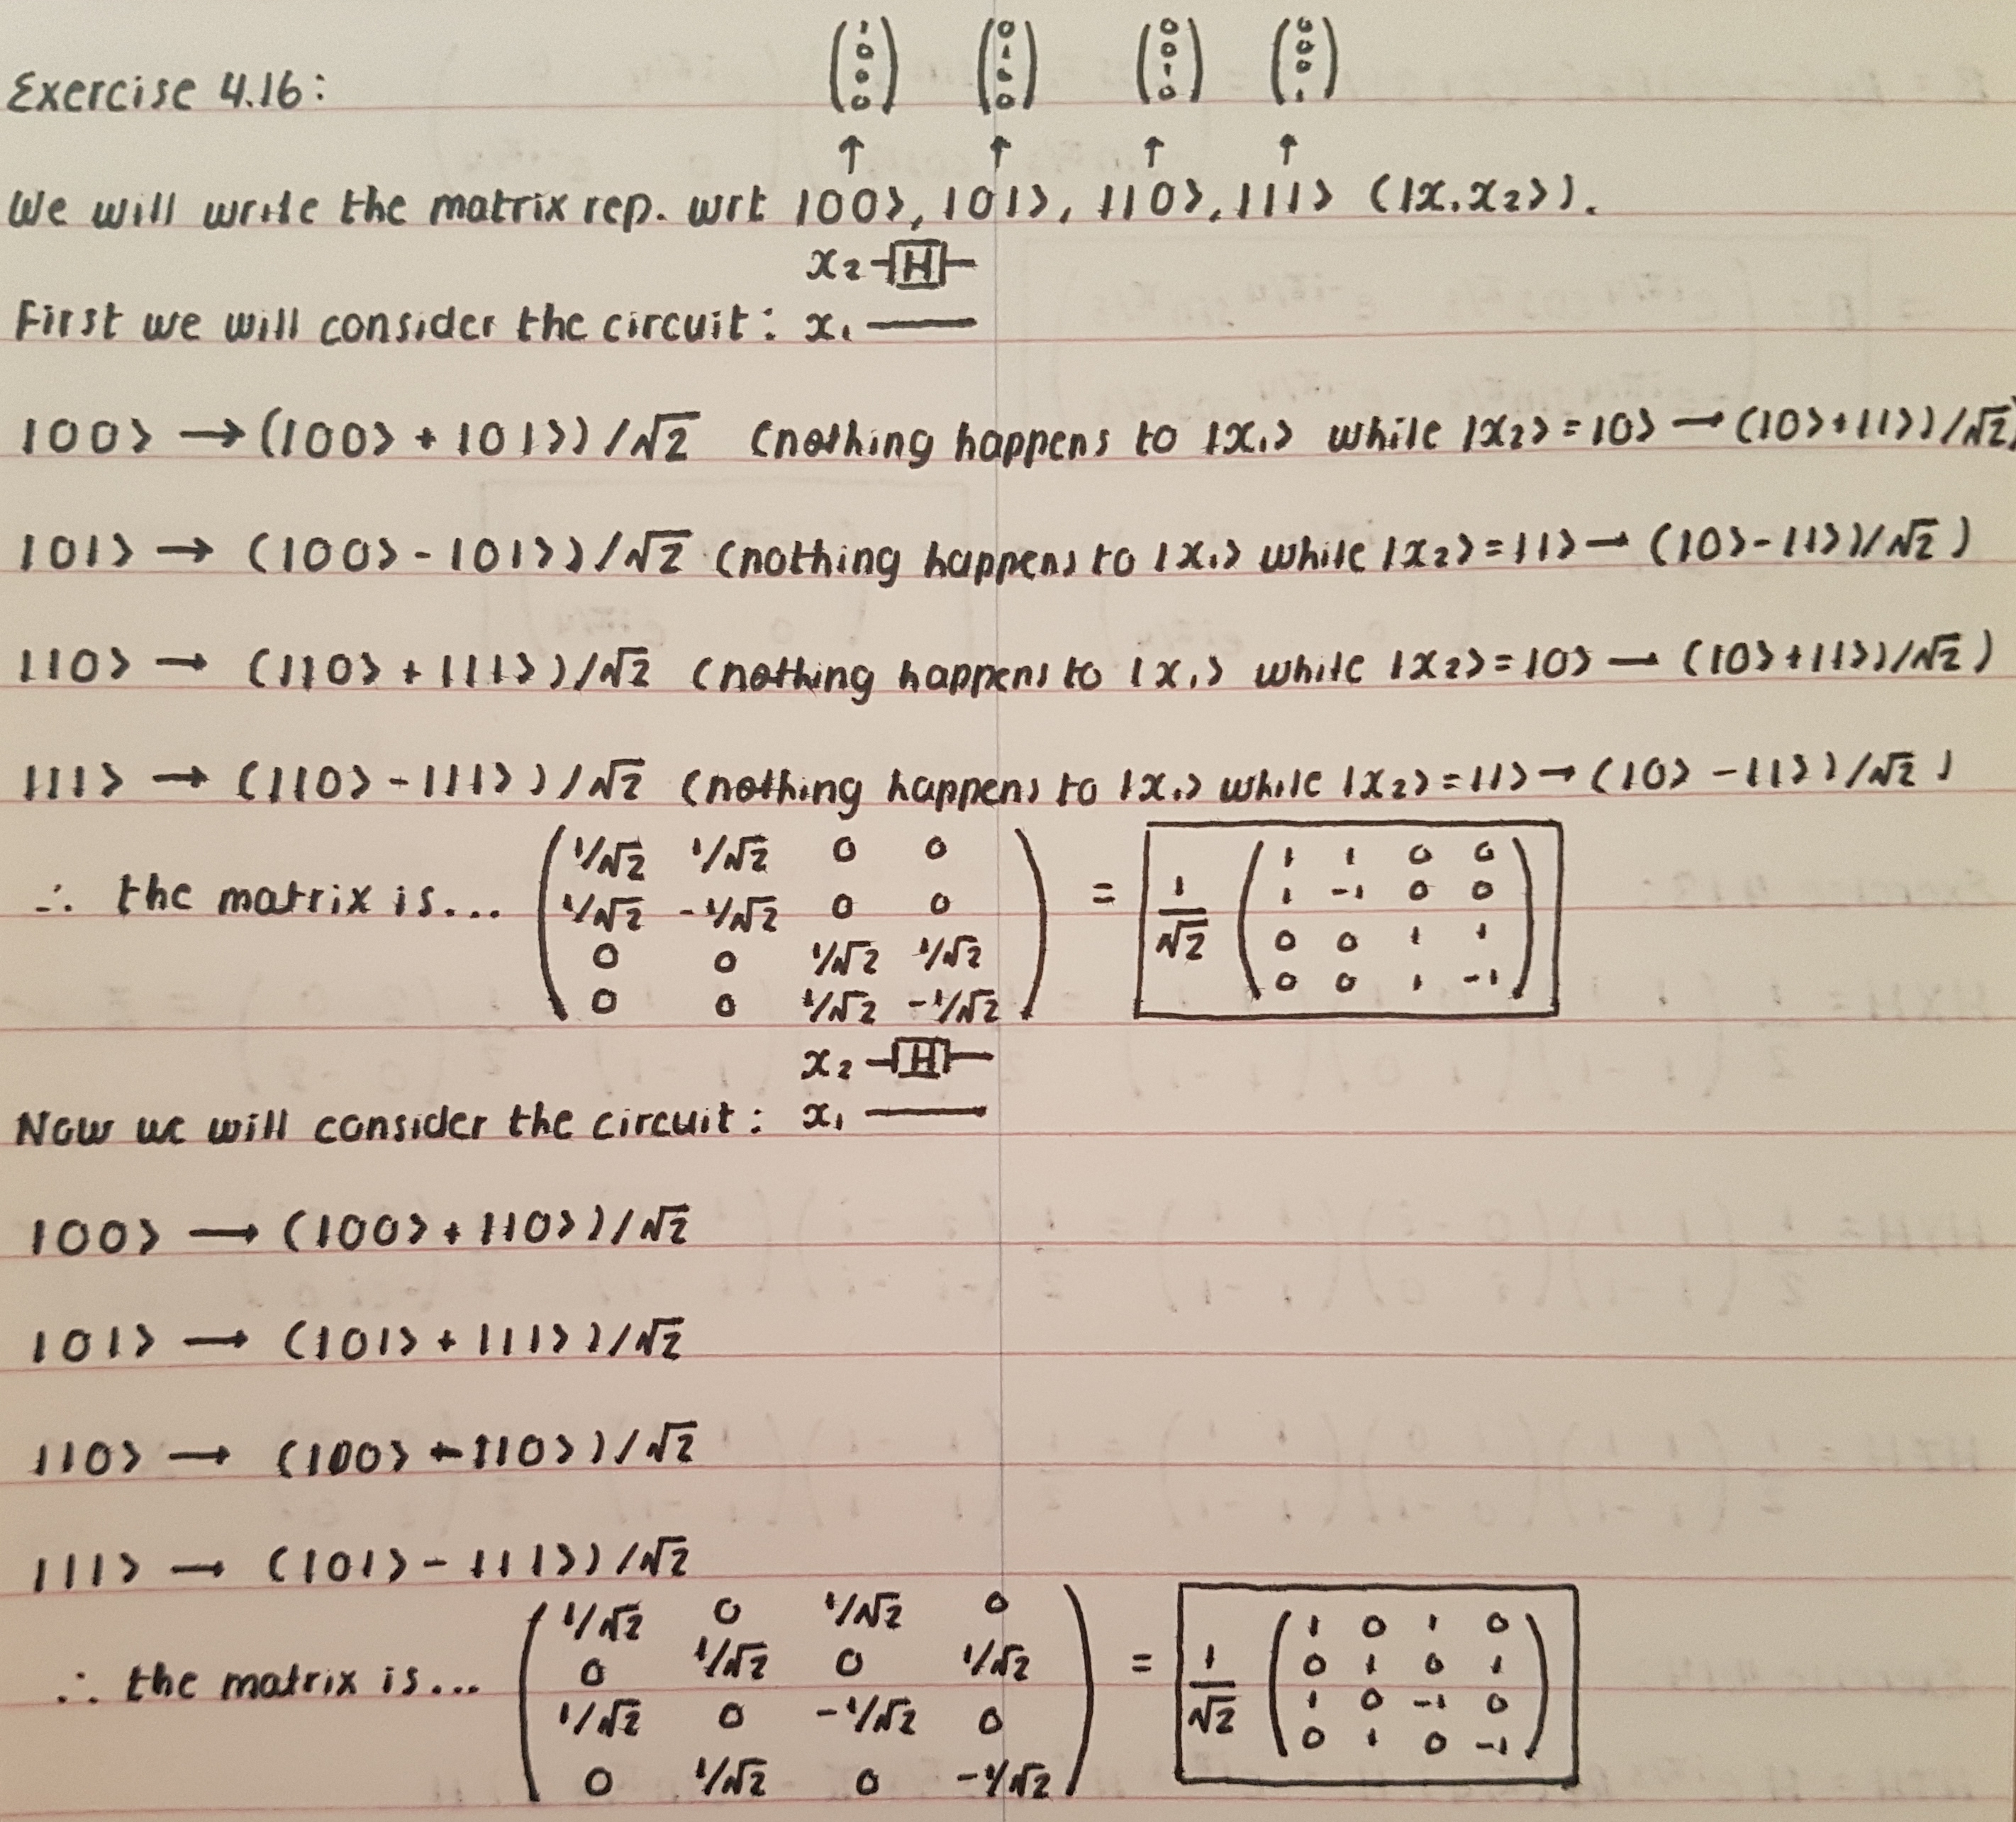 (1 0 0 0) (0 1 0 0) (0 0 1 0) (0 0 0 1)
Exercise 4.16:
↑ ↑ ↑ ↑
We will write the matrix rep. wrt |00⟩, |01⟩, |10⟩, |11⟩ (|x₁x₂⟩).
x₂ –[H]–
First we will consider the circuit: x₁ ———
|00⟩ → (|00⟩ + |01⟩)/√2 (nothing happens to |x₁⟩ while |x₂⟩ = |0⟩ → (|0⟩+|1⟩)/√2)
|01⟩ → (|00⟩ - |01⟩)/√2 (nothing happens to |x₁⟩ while |x₂⟩ = |1⟩ → (|0⟩-|1⟩)/√2)
|10⟩ → (|10⟩ + |11⟩)/√2 (nothing happens to |x₁⟩ while |x₂⟩ = |0⟩ → (|0⟩+|1⟩)/√2)
|11⟩ → (|10⟩ - |11⟩)/√2 (nothing happens to |x₁⟩ while |x₂⟩ = |1⟩ → (|0⟩-|1⟩)/√2)
∴ the matrix is... (1/√2 1/√2 0 0
1/√2 -1/√2 0 0
0 0 1/√2 1/√2
0 0 1/√2 -1/√2) = 1/√2 (1 1 0 0
1 -1 0 0
0 0 1 1
0 0 1 -1)
x₂ –[H]–
Now we will consider the circuit: x₁ ———
|00⟩ → (|00⟩ + |10⟩)/√2
|01⟩ → (|01⟩ + |11⟩)/√2
|10⟩ → (|00⟩ - |10⟩)/√2
|11⟩ → (|01⟩ - |11⟩)/√2
∴ the matrix is... (1/√2 0 1/√2 0
0 1/√2 0 1/√2
1/√2 0 -1/√2 0
0 1/√2 0 -1/√2) = 1/√2 (1 0 1 0
0 1 0 1
1 0 -1 0
0 1 0 -1)